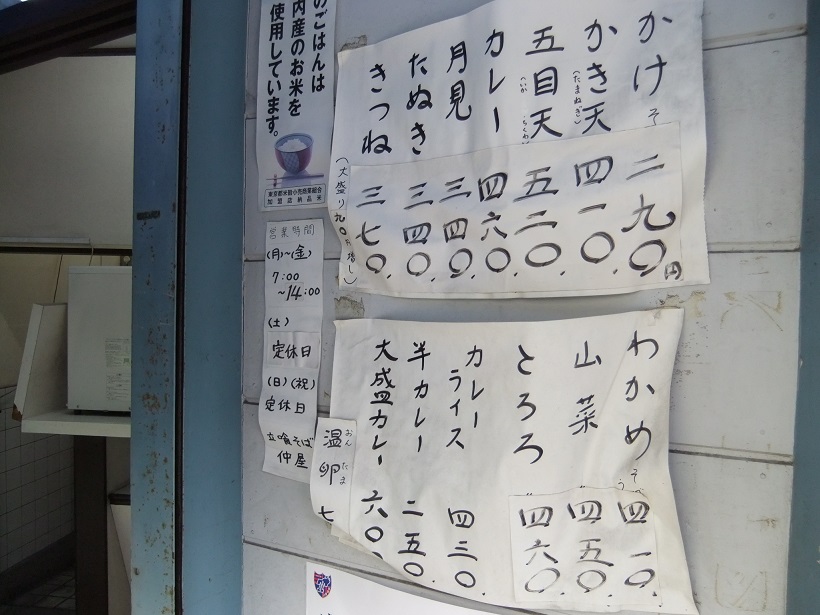 かけそ 二九〇円
かき天 四一〇.
(たまねぎ)
五目天 五二〇.
カレー 四六〇.
月見 三四〇.
たぬき 三四〇.
きつね 三七〇.
(大盛り九〇円増し)
わかめそ 四一〇.
山菜 四五〇.
とろろ 四六〇.
カレーライス 四三〇.
半カレー 二五〇.
大盛カレー 六〇〇.
温卵 七
おんたま
のごはんは
内産のお米を
使用しています。
東京都米穀小売商業組合
加盟店納品米
営業時間
(月)~(金)
7:00
~14:00
(土)
定休日
(日)(祝)
定休日
立喰そば
仲屋